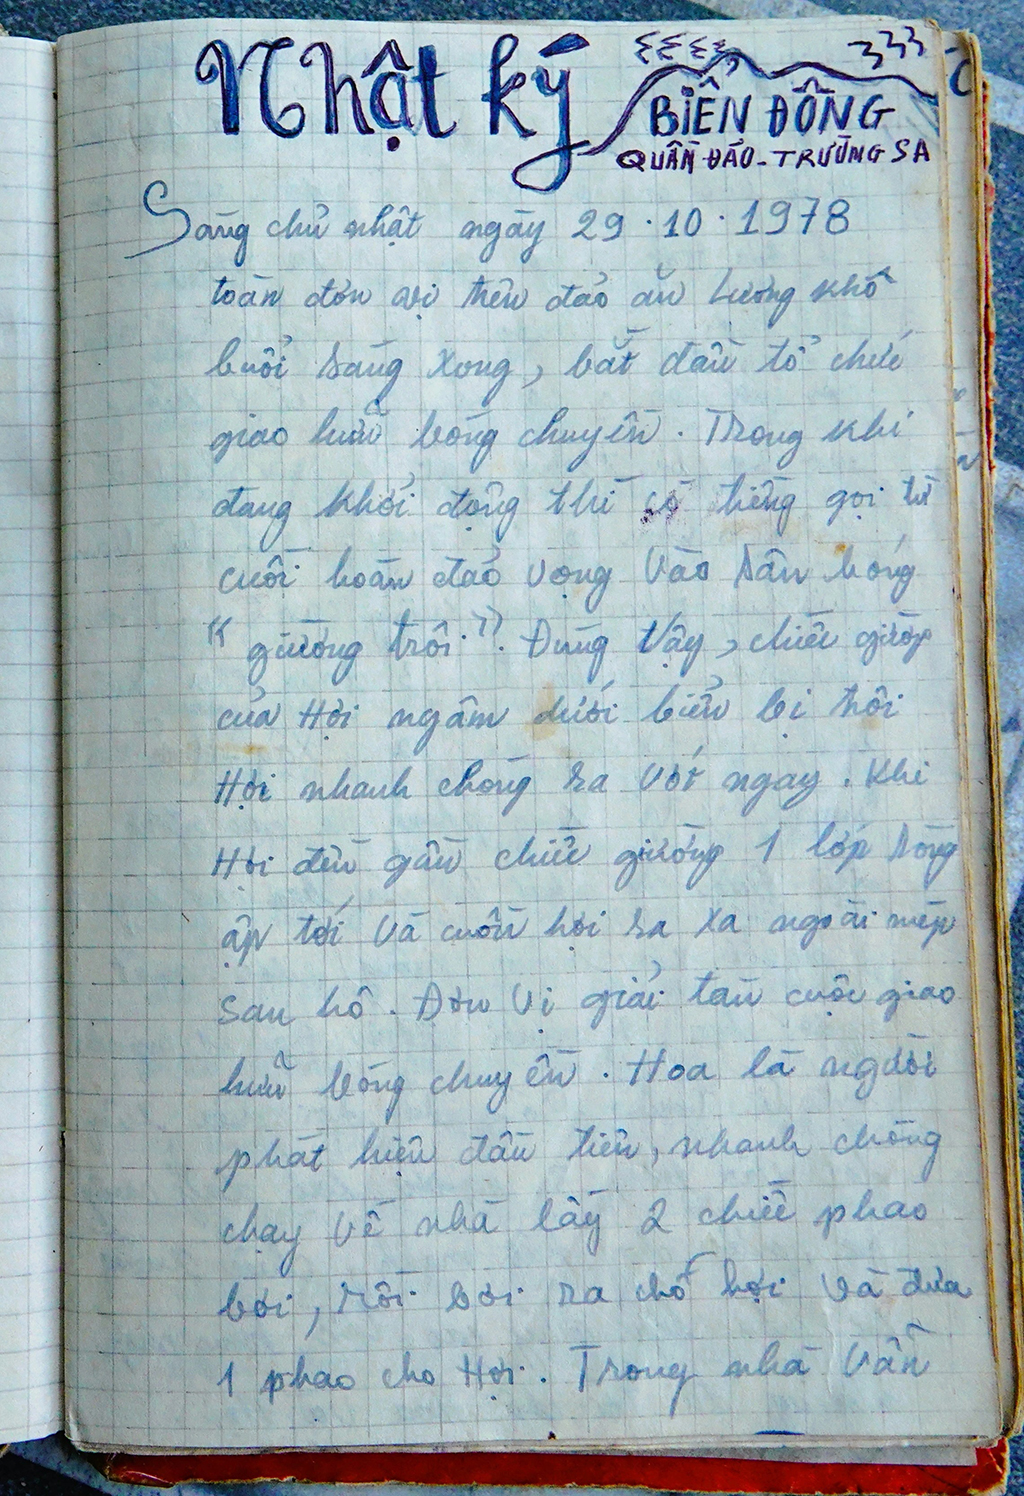 Nhật ký
BIỂN ĐÔNG
QUẦN ĐẢO - TRƯỜNG SA
Sáng chủ nhật ngày 29.10.1978
toàn đơn vị trên đảo ăn lương khô
buổi sáng xong, bắt đầu tổ chức
giao lưu bóng chuyền. Trong khi
đang khởi động thì có tiếng gọi từ
cuối hoàn đảo vọng vào sân bóng
"giường trôi". Đúng vậy, chiếc giường
của Hợi ngâm dưới biển bị trôi
Hợi nhanh chóng ra vớt ngay. Khi
Hợi đến gần chiếc giường 1 lớp sóng
ập tới và cuốn hợi ra xa ngoài mép
san hô. Đơn vị giải tán cuộc giao
lưu bóng chuyền. Hoa là người
phát hiện đầu tiên, nhanh chóng
chạy về nhà lấy 2 chiếc phao
bơi, rồi bơi ra chỗ hợi và đưa
1 phao cho Hợi. Trong nhà vẫn